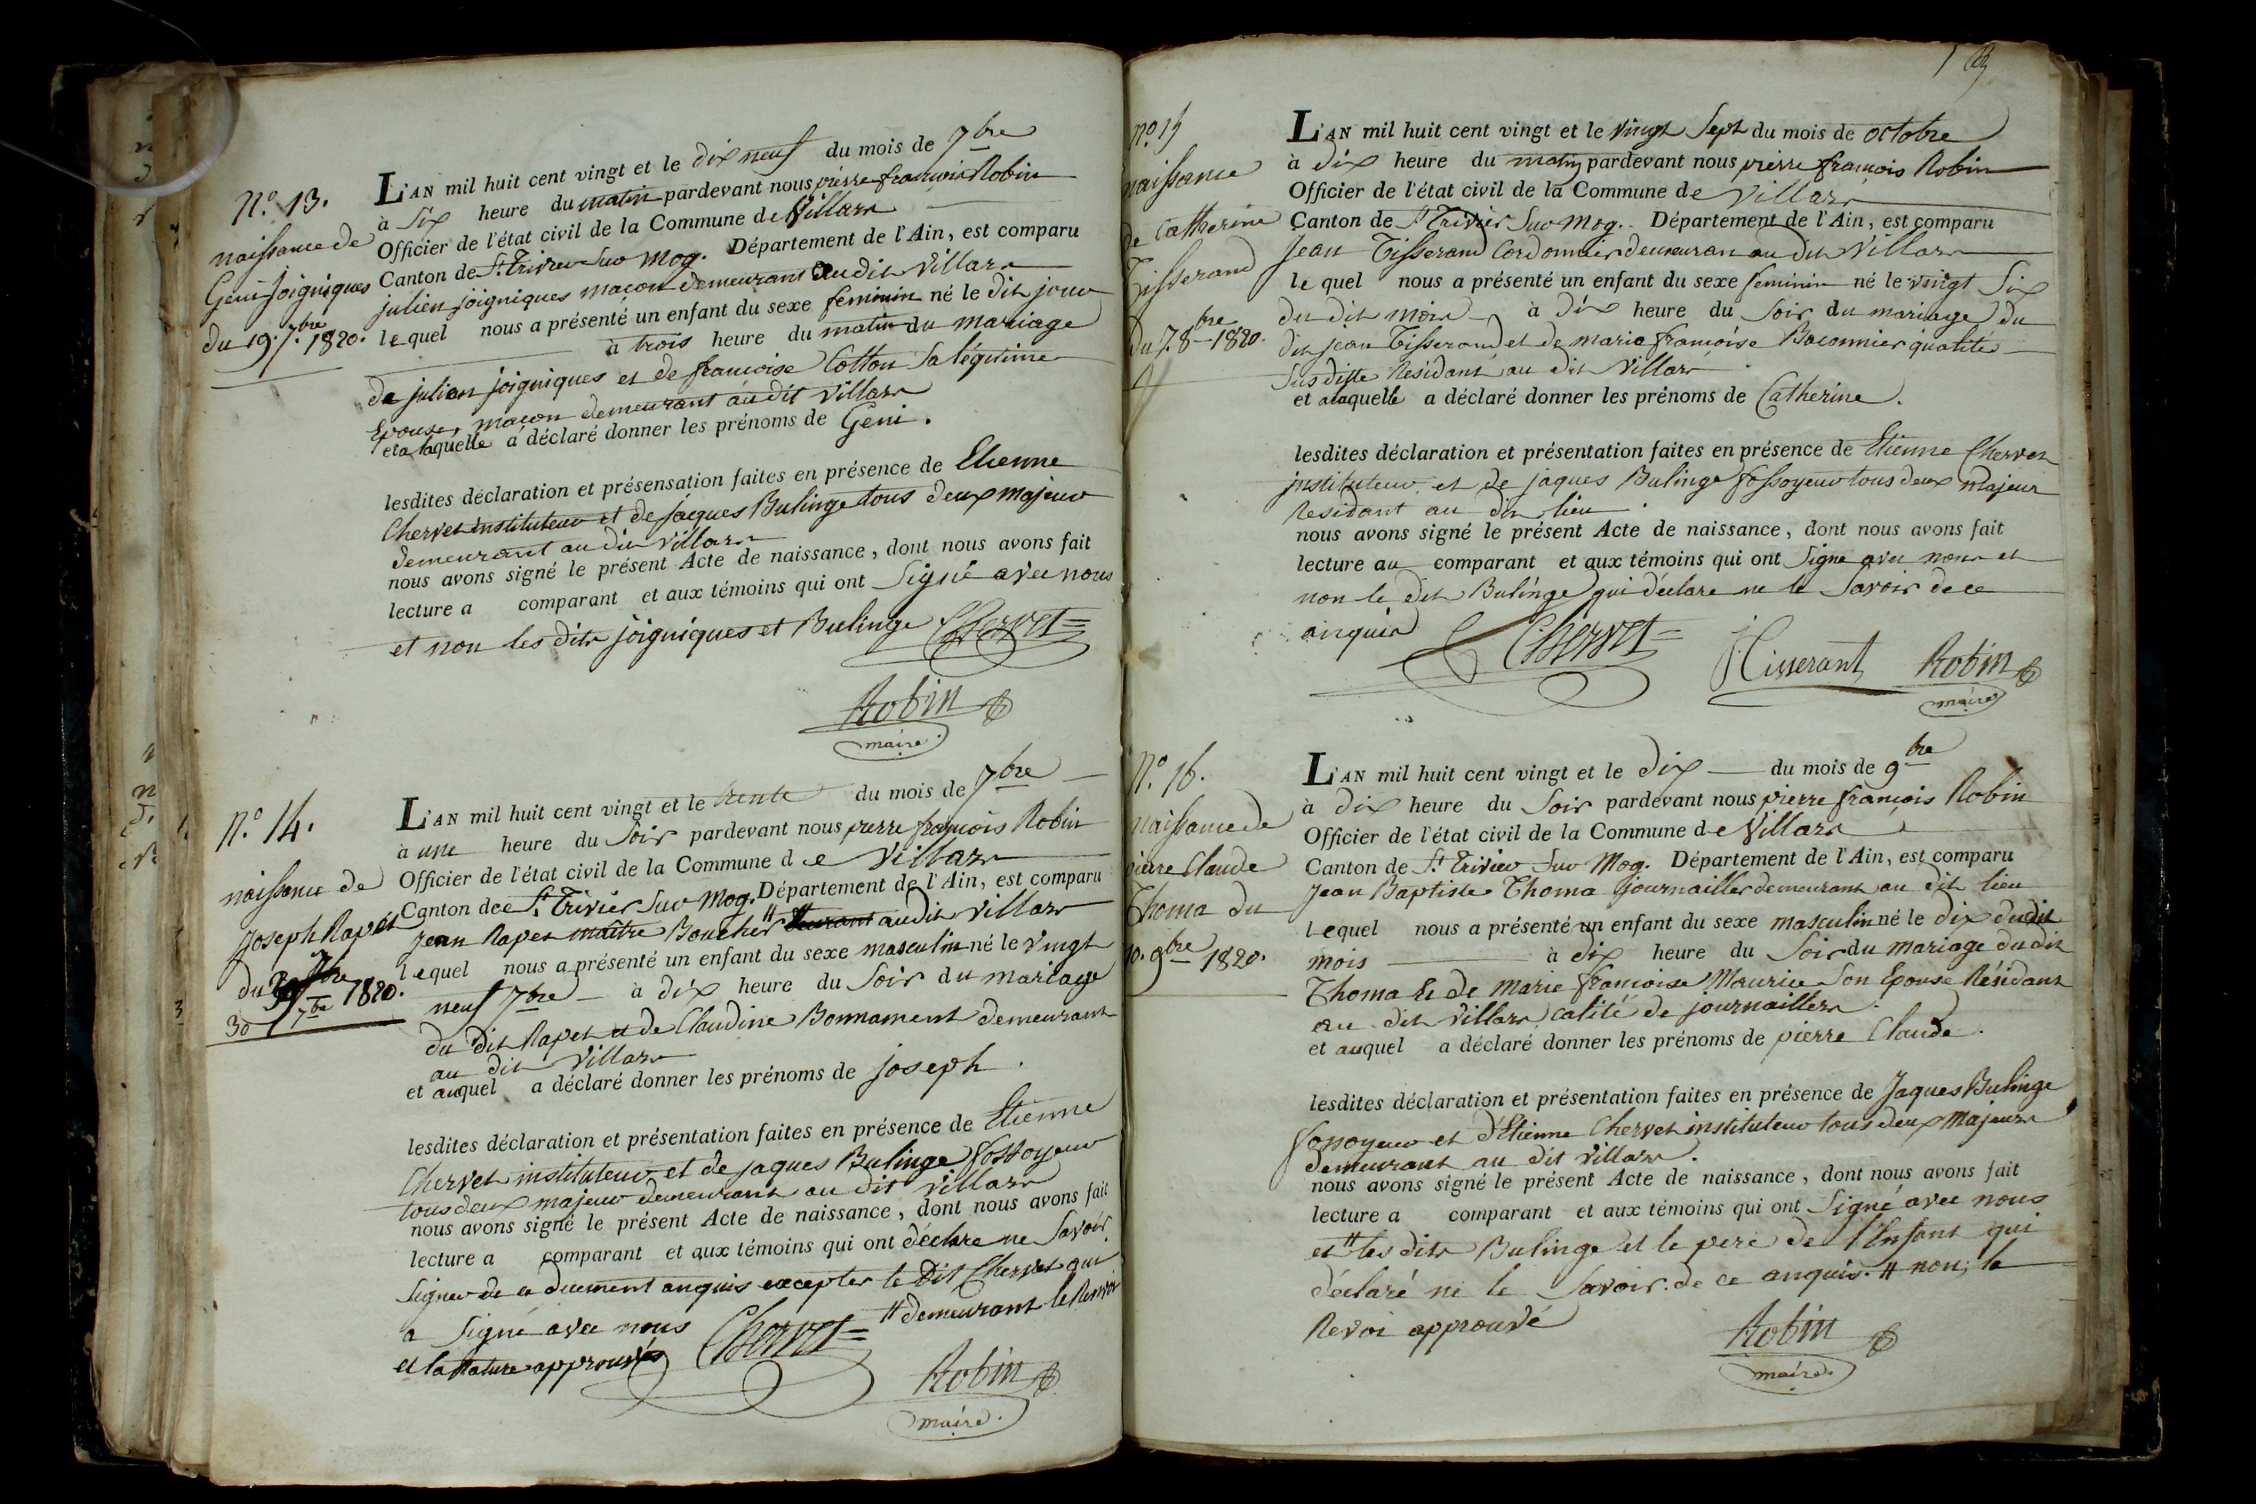 N.o 13.
naissance de
Geni joigniques
du 19. 7.bre 1820.
L'AN mil huit cent vingt et le dix neuf du mois de 7bre
à Six heure du matin pardevant nous pierre françois Robin
Officier de l'état civil de la Commune de Villars
Canton de St. Trivier Sur Mog. Département de l'Ain, est comparu
julien joigniques macon demeurant audit Villars
lequel nous a présenté un enfant du sexe feminin né le dit jour
à trois heure du matin du mariage
de julien joigniques et de francoise Cotton Sa légitime
Epouse, macon demeurant audit Villars
et a laquelle a déclaré donner les prénoms de Geni.
lesdites déclaration et présensation faites en présence de Etienne
Chervet instituteur et de jaques Bulinge tous deux majeur
demeurant au dit Villars
nous avons signé le présent Acte de naissance, dont nous avons fait
lecture a comparant et aux témoins qui ont Signé avec nous
et non les dits joigniques et Bulinge Chervet
Robin
maire.
N.o 14.
naissance de
Joseph Rapet
du 7bre 1820.
30 7bre
L'AN mil huit cent vingt et le trente du mois de 7bre
à une heure du Soir pardevant nous pierre françois Robin
Officier de l'état civil de la Commune de Villars
Canton dee St. Trivier Sur Mog. Département de l'Ain, est comparu
jean Rapet maitre Boucher # audit Villars
lequel nous a présenté un enfant du sexe masculin né le vingt
neuf 7bre à dix heure du Soir du mariage
du dit Rapet et de Claudine Bonnament demeurant
au dit Villars
et auquel a déclaré donner les prénoms de joseph.
lesdites déclaration et présentation faites en présence de Etienne
Chervet instituteur et de jaques Bulinge fossoyeur
tous deux majeur demeurant au dit Villars
nous avons signé le présent Acte de naissance, dont nous avons fait
lecture a comparant et aux témoins qui ont déclare ne Savoir
Signer de ce duement anquis excepter le Dit Chervet qui
a Signé avec nous # demeurant le Renvoi
et la Rature approuvés Chervet
Robin
maire.
N.o 15
naissance
de Catherine
Tisserand
du 7. 8bre 1820.
L'AN mil huit cent vingt et le vingt Sept du mois de octobre
à dix heure du matin pardevant nous pierre françois Robin
Officier de l'état civil de la Commune de Villars
Canton de St Trivier Sur Mog. Département de l'Ain, est comparu
Jean Tisserand Cordonnier demeuran au dit Villars
le quel nous a présenté un enfant du sexe feminin né le vingt Six
du dit mois à dix heure du Soir du mariage du
dit jean Tisserand et de marie françoise Baconnier qualite
Susditte Residant au dit Villars
et alaquelle a déclaré donner les prénoms de Catherine.
lesdites déclaration et présentation faites en présence de Etienne Chervet
instituteur et de jaques Bulinge fossoyeur tous deux majeur
Residant au dit lieu.
nous avons signé le présent Acte de naissance, dont nous avons fait
lecture au comparant et aux témoins qui ont Signe avec nous et
non le dit Bulinge qui déclare ne le Savoir de ce
anquis Chervet JTisserant Robin
maire
N.o 16.
naissance de
pierre Claude
Thoma du
10. 9bre 1820.
L'AN mil huit cent vingt et le dix du mois de 9bre
à dix heure du Soir pardevant nous pierre françois Robin
Officier de l'état civil de la Commune de Villars
Canton de St. Trivier Sur Mog. Département de l'Ain, est comparu
Jean Baptiste Thoma journaillier demeurant au dit lieu
lequel nous a présenté un enfant du sexe masculin né le dix du dit
mois à dix heure du Soir du mariage du dit
Thoma Et de Marie françoise Maurice Son Epouse Résidant
au dit Villars calité de journaillers.
et auquel a déclaré donner les prénoms de pierre Claude.
lesdites déclaration et présentation faites en présence de Jaques Bulinge
fossoyeur et d'Etienne Chervet instituteur tous deux Majeurs
demeurant au dit Villars.
nous avons signé le présent Acte de naissance, dont nous avons fait
lecture a comparant et aux témoins qui ont Signé avec nous
et # les dits Bulinge et le pere de l'Enfant qui
déclaré ne le Savoir de ce anquis. # non, le
Revoi approuvé
Robin
maire.